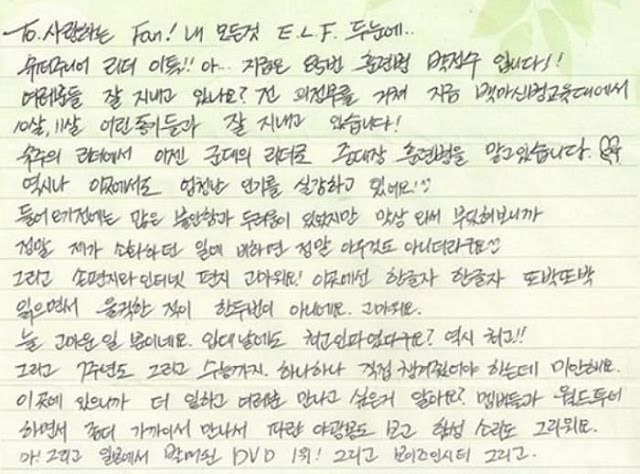 To. 사랑하는 Fan! 내 모든것 E.L.F. 두눈에...
슈퍼주니어 리더 이특!! 아... 지금은 훈련병 박정수 입니다!
여러분들 잘 지내고 있나요? 전 의정부를 거쳐 지금 백마신병교육대에서
10살, 11살 어린 동기들과 잘 지내고 있습니다!
슈주의 리더에서 이젠 군대의 리더로 중대장 훈련병을 맡고있습니다.
역시나 이곳에서도 엄청난 인기를 실감하고 있어요!
들어오기전에는 많은 불안함과 두려움이 있었지만 막상 와서 부딪혀보니까
정말 제가 소화하던 일에 비하면 정말 아무것도 아니더라구요
그리고 손편지와 인터넷 편지 고마워요! 이곳에선 한글자 한글자 또박또박
읽으면서 울컥한 적이 한두번이 아니에요. 고마워요.
늘 고마운 일 뿐이네요. 입대날에도 최고인파였다구요? 역시 최고!!
그리고 7주년도 그리고 수능까지. 하나하나 직접 챙겨줬어야 하는데 미안해요.
이곳에 있으니까 더 일하고 여러분 만나고 싶은거 알아요? 멤버들과 월드투어
하면서 좀더 가까이서 만나서 파란 야광봉도 보고 함성 소리도 그리워요.
아! 그리고 일본에서 발매된 DVD 1위! 그리고 보이즈인시티 그리고.